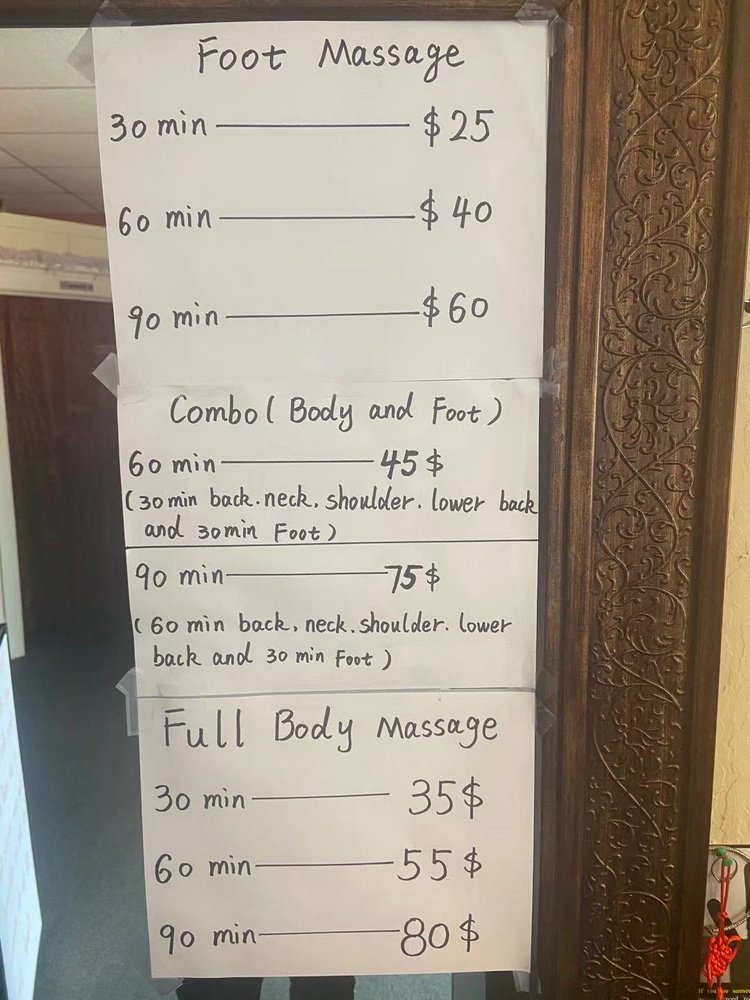 Foot Massage
30 min —— $25
60 min —— $40
90 min —— $60
Combo ( Body and Foot )
60 min —— 45$
(30min back. neck. shoulder. lower back
and 30min Foot)
90 min —— 75$
( 60 min back, neck. shoulder. lower
back and 30 min Foot )
Full Body Massage
30 min —— 35$
60 min —— 55$
90 min —— 80$
If you